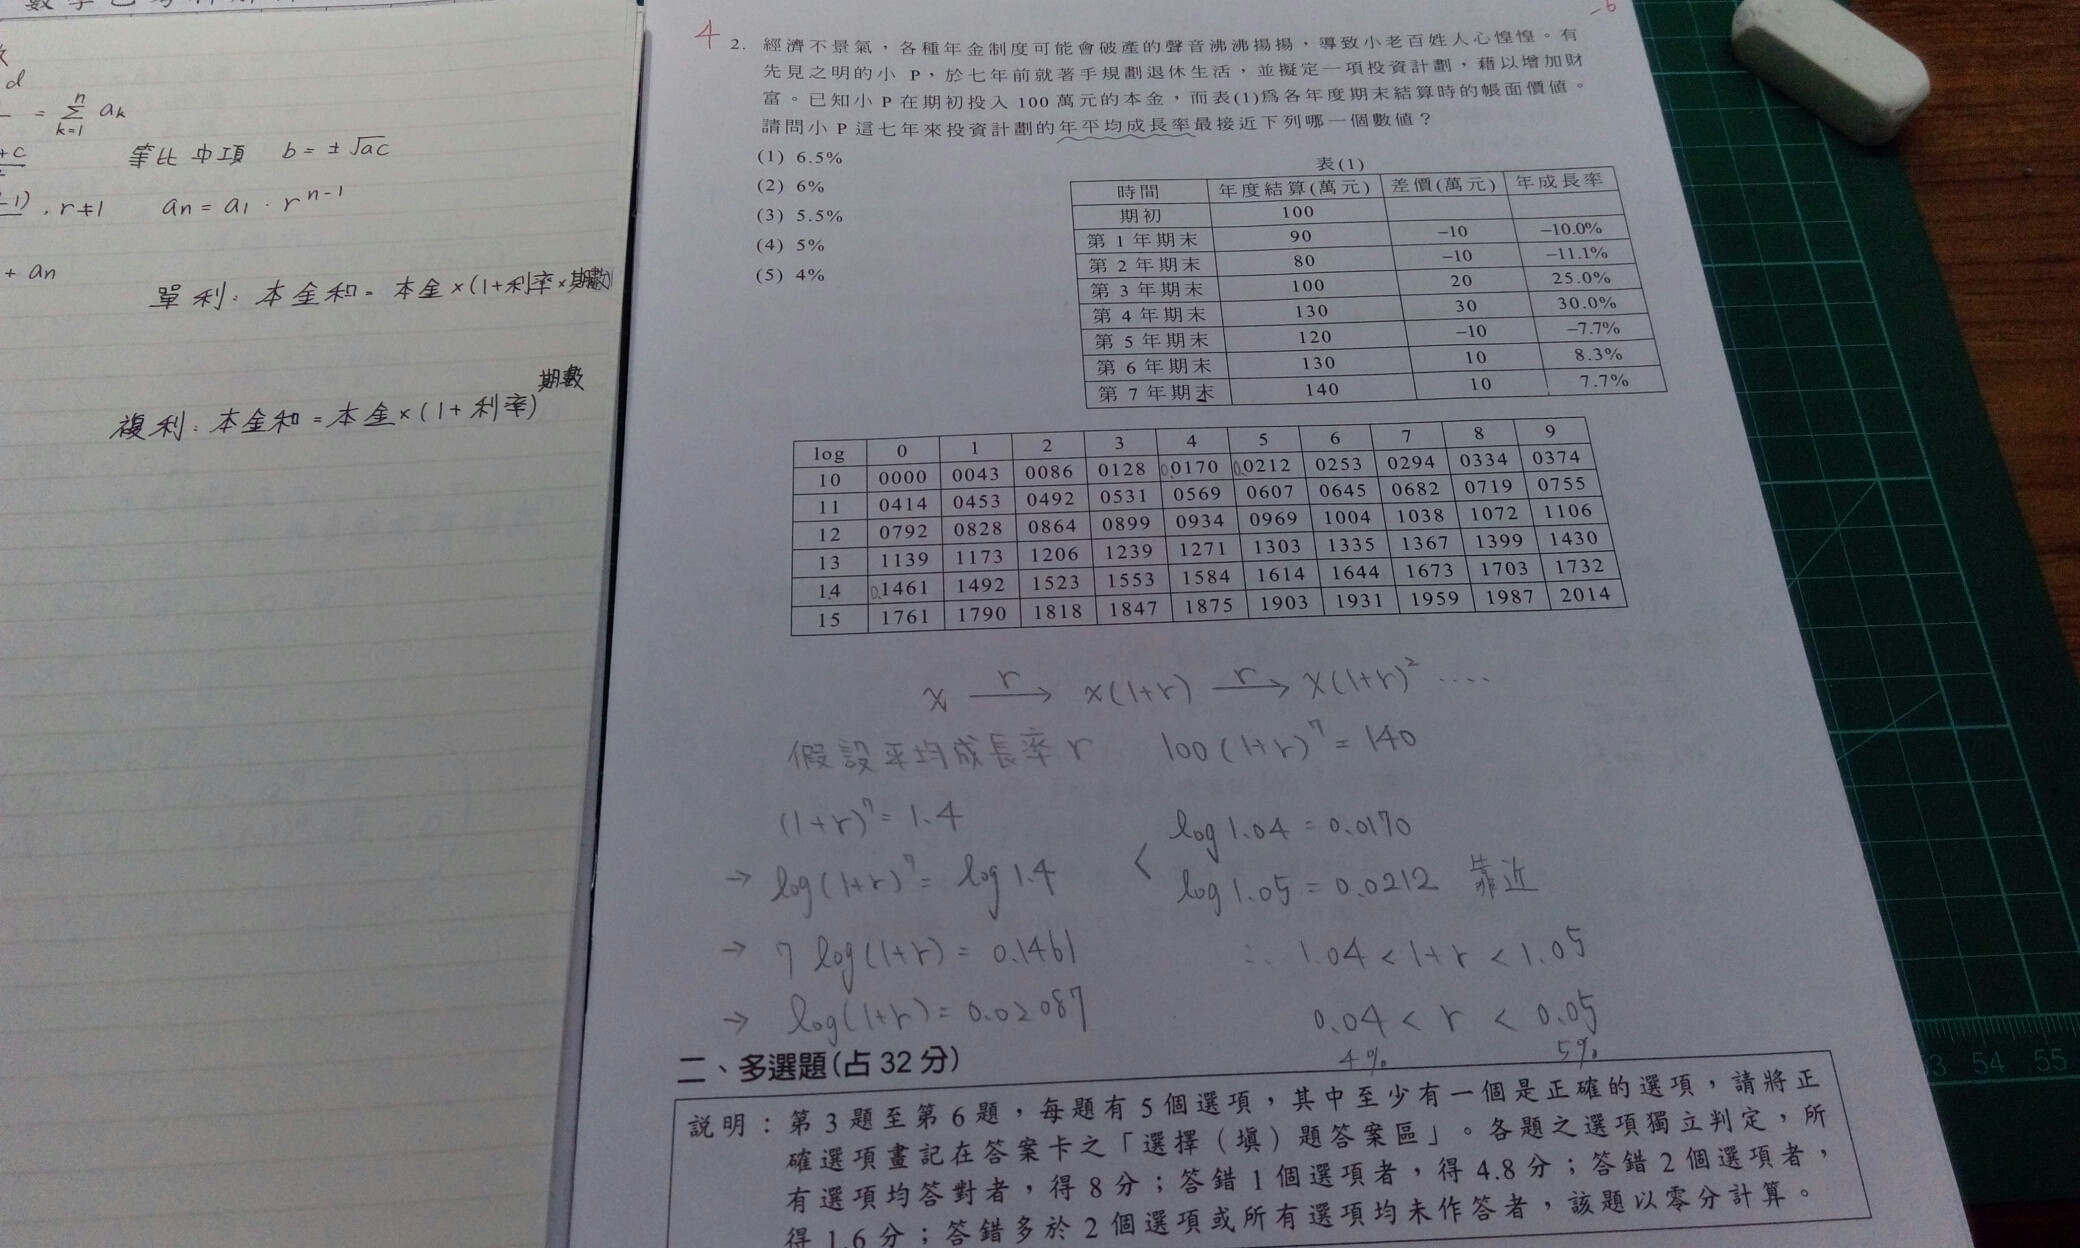 = Σ ak
n
k=1
等比中項 b = ± √ac
, r≠1 an = a1 · r^n-1
+ an
單利: 本金和 = 本金×(1+利率×期數)
複利: 本金和 = 本金×(1+利率)^期數
4
-6
2. 經濟不景氣，各種年金制度可能會破產的聲音沸沸揚揚，導致小老百姓人心惶惶。有
先見之明的小 P，於七年前就著手規劃退休生活，並擬定一項投資計劃，藉以增加財
富。已知小 P 在期初投入 100 萬元的本金，而表(1)為各年度期末結算時的帳面價值。
請問小 P 這七年來投資計劃的年平均成長率最接近下列哪一個數值？
(1) 6.5%
(2) 6%
(3) 5.5%
(4) 5%
(5) 4%
表(1)
時間 年度結算(萬元) 差價(萬元) 年成長率
期初 100
第 1 年期末 90 –10 –10.0%
第 2 年期末 80 –10 –11.1%
第 3 年期末 100 20 25.0%
第 4 年期末 130 30 30.0%
第 5 年期末 120 –10 –7.7%
第 6 年期末 130 10 8.3%
第 7 年期末 140 10 7.7%
log 0 1 2 3 4 5 6 7 8 9
10 0000 0043 0086 0128 0.0170 0.0212 0253 0294 0334 0374
11 0414 0453 0492 0531 0569 0607 0645 0682 0719 0755
12 0792 0828 0864 0899 0934 0969 1004 1038 1072 1106
13 1139 1173 1206 1239 1271 1303 1335 1367 1399 1430
1.4 0.1461 1492 1523 1553 1584 1614 1644 1673 1703 1732
15 1761 1790 1818 1847 1875 1903 1931 1959 1987 2014
x r→ x(1+r) r→ x(1+r)² ....
假設平均成長率 r 100(1+r)⁷ = 140
(1+r)⁷ = 1.4
→ log(1+r)⁷ = log 1.4
→ 7 log(1+r) = 0.1461
→ log(1+r) = 0.02087
< log 1.04 = 0.0170
log 1.05 = 0.0212 靠近
∴ 1.04 < 1+r < 1.05
0.04 < r < 0.05
4% 5%
二、多選題(占 32 分)
說明：第 3 題至第 6 題，每題有 5 個選項，其中至少有一個是正確的選項，請將正
確選項畫記在答案卡之「選擇（填）題答案區」。各題之選項獨立判定，所
有選項均答對者，得 8 分；答錯 1 個選項者，得 4.8 分；答錯 2 個選項者，
得 1.6 分；答錯多於 2 個選項或所有選項均未作答者，該題以零分計算。
53 54 55